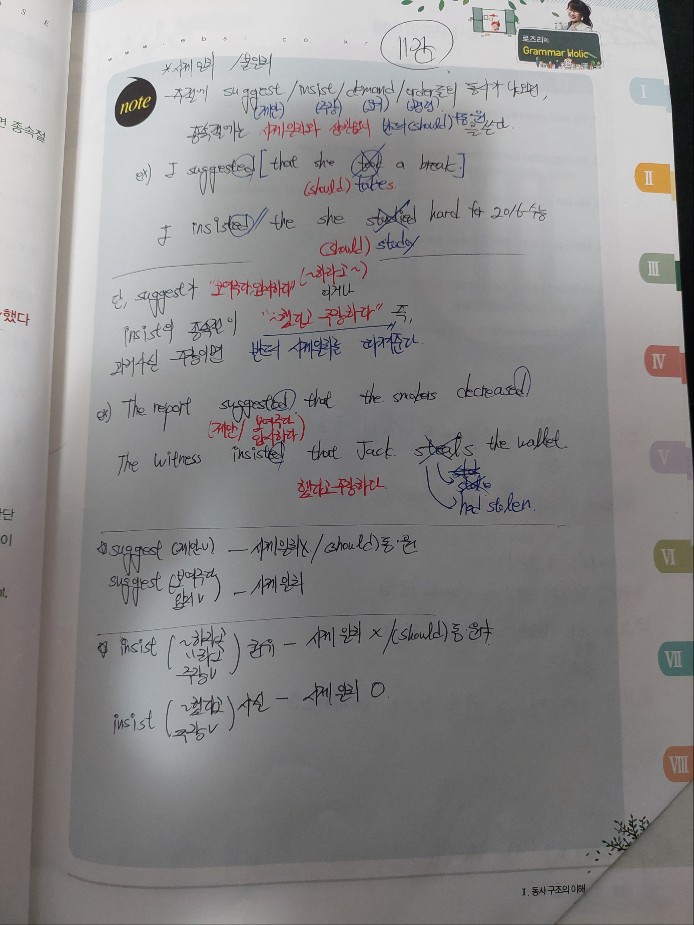 OSE
www.ebsi.co.kr
11강
로즈리의
Grammar Holic
*시제일치 / 불일치
note
주절에 suggest / insist / demand / order등의 동사가 나오면,
(제안) (주장) (요구) (명령)
종속절에는 시제일치와 상관없이 반드시 (should) 동·원 을 쓴다.
ex) I suggested [that she took a break.]
(should) takes
I insisted // the she studied hard for 2016 수능
(should) study
단, suggest가 "보여주다, 암시하다" 이거나
(~하라고~)
insist의 종속절이 "~했다고 주장하다" 즉,
과거사실 주장이면 반드시 시제일치를 시켜준다.
ex) The report suggested that the smokers decreased
(제안 / 보여주다 암시하다)
The witness insisted that Jack steals the wallet.
했다고 주장하다.
stole
had stolen.
suggest (제안V) – 시제일치X / (should) 동·원
suggest (보여주다 암시V) – 시제일치
insist (~하라고 주장V) – 시제일치 X / (should) 동·원
insist (~했다고 주장V) 사실 – 시제일치 O.
면 종속절
했다
I
II
III
IV
V
VI
VII
VIII
I. 동사 구조의 이해